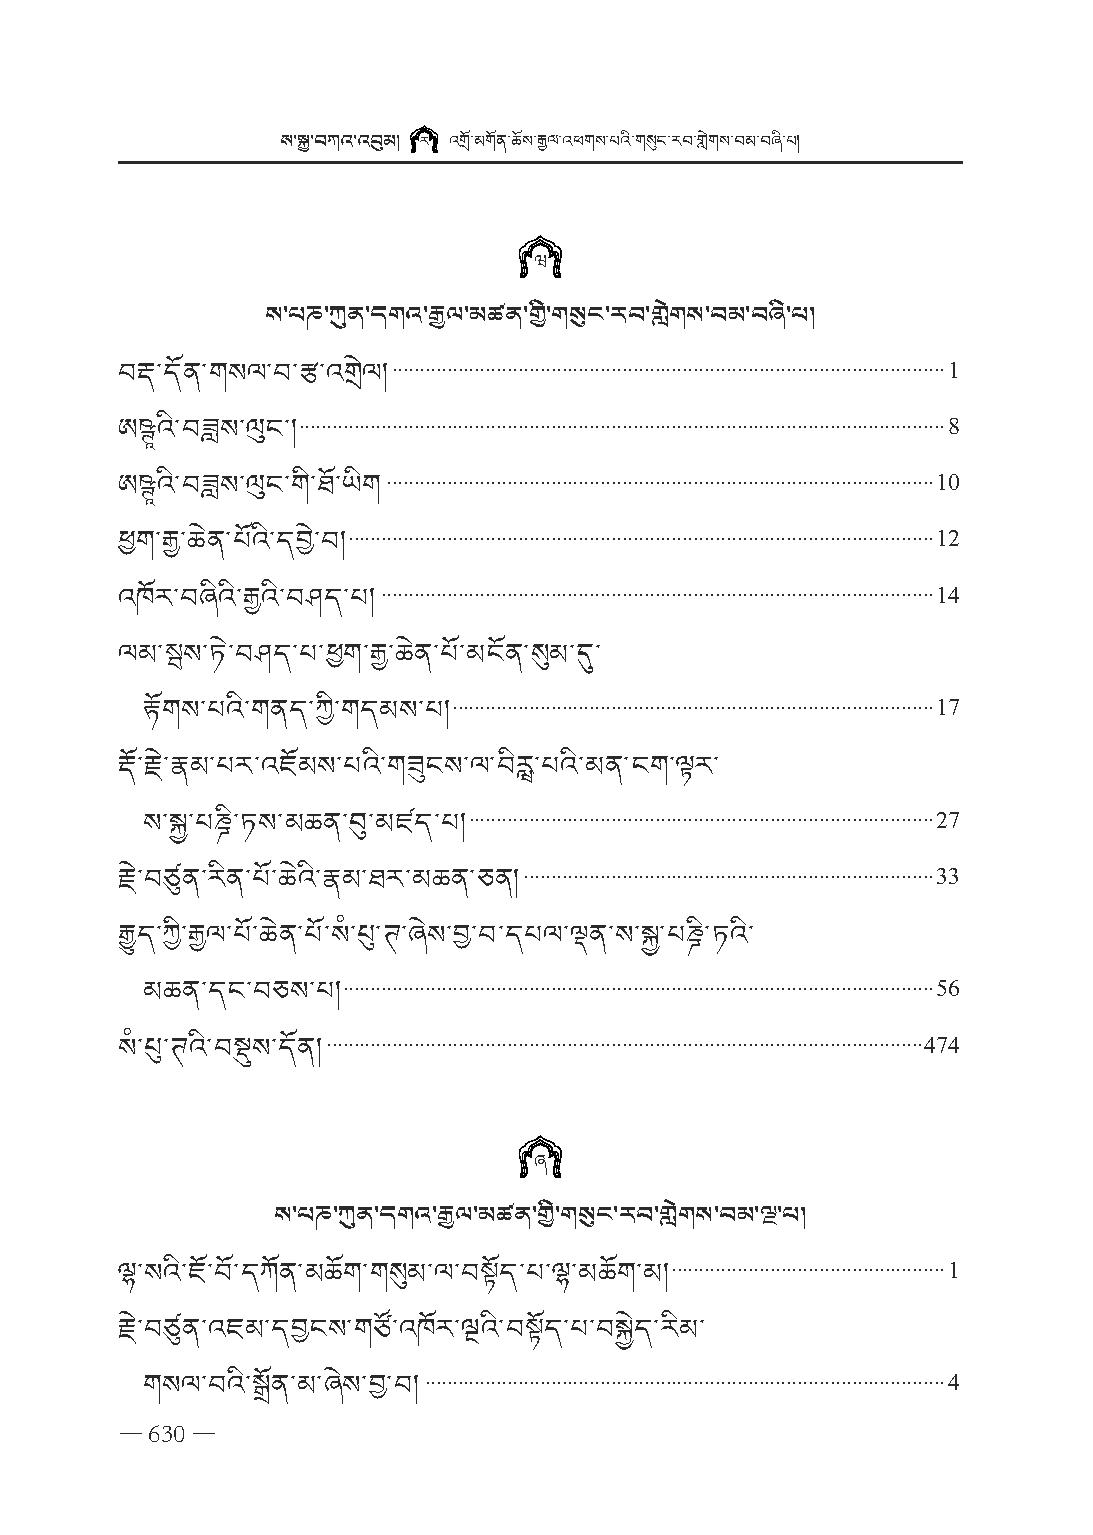 ས་སྐྱ་བཀའ་འབུམ། ར འགྲོ་མགོན་ཆོས་རྒྱལ་འཕགས་པའི་གསུང་རབ་གླེགས་བམ་བཞི་པ།
ལ
ས་པཎ་ཀུན་དགའ་རྒྱལ་མཚན་གྱི་གསུང་རབ་གླེགས་བམ་བཞི་པ།
བརྡ་དོན་གསལ་བ་རྩ་འགྲེལ། 1
ཨཥྚའི་བཟླས་ལུང་། 8
ཨཥྚའི་བཟླས་ལུང་གི་ཐོ་ཡིག 10
ཕྱག་རྒྱ་ཆེན་པོའི་དབྱེ་བ། 12
འཁོར་བཞིའི་རྒྱའི་བཤད་པ། 14
ལམ་སྦས་ཏེ་བཤད་པ་ཕྱག་རྒྱ་ཆེན་པོ་མངོན་སུམ་དུ་
རྟོགས་པའི་གནད་ཀྱི་གདམས་པ། 17
རྡོ་རྗེ་རྣམ་པར་འཇོམས་པའི་གཟུངས་ལ་བིརྺ་པའི་མན་ངག་ལྟར་
ས་སྐྱ་པཎྜི་ཏས་མཆན་བུ་མཛད་པ། 27
རྗེ་བཙུན་རིན་པོ་ཆེའི་རྣམ་ཐར་མཆན་ཅན། 33
རྒྱུད་ཀྱི་རྒྱལ་པོ་ཆེན་པོ་སཾ་པུ་ཊ་ཞེས་བྱ་བ་དཔལ་ལྡན་ས་སྐྱ་པཎྜི་ཏའི་
མཆན་དང་བཅས་པ། 56
སཾ་པུ་ཊའི་བསྡུས་དོན། 474
ཞ
ས་པཎ་ཀུན་དགའ་རྒྱལ་མཚན་གྱི་གསུང་རབ་གླེགས་བམ་ལྔ་པ།
ལྷ་སའི་ཇོ་བོ་དཀོན་མཆོག་གསུམ་ལ་བསྟོད་པ་ལྷ་མཆོག་མ། 1
རྗེ་བཙུན་འཇམ་དབྱངས་གཙོ་འཁོར་ལྔའི་བསྟོད་པ་བསྐྱེད་རིམ་
གསལ་བའི་སྒྲོན་མ་ཞེས་བྱ་བ། 4
— 630 —